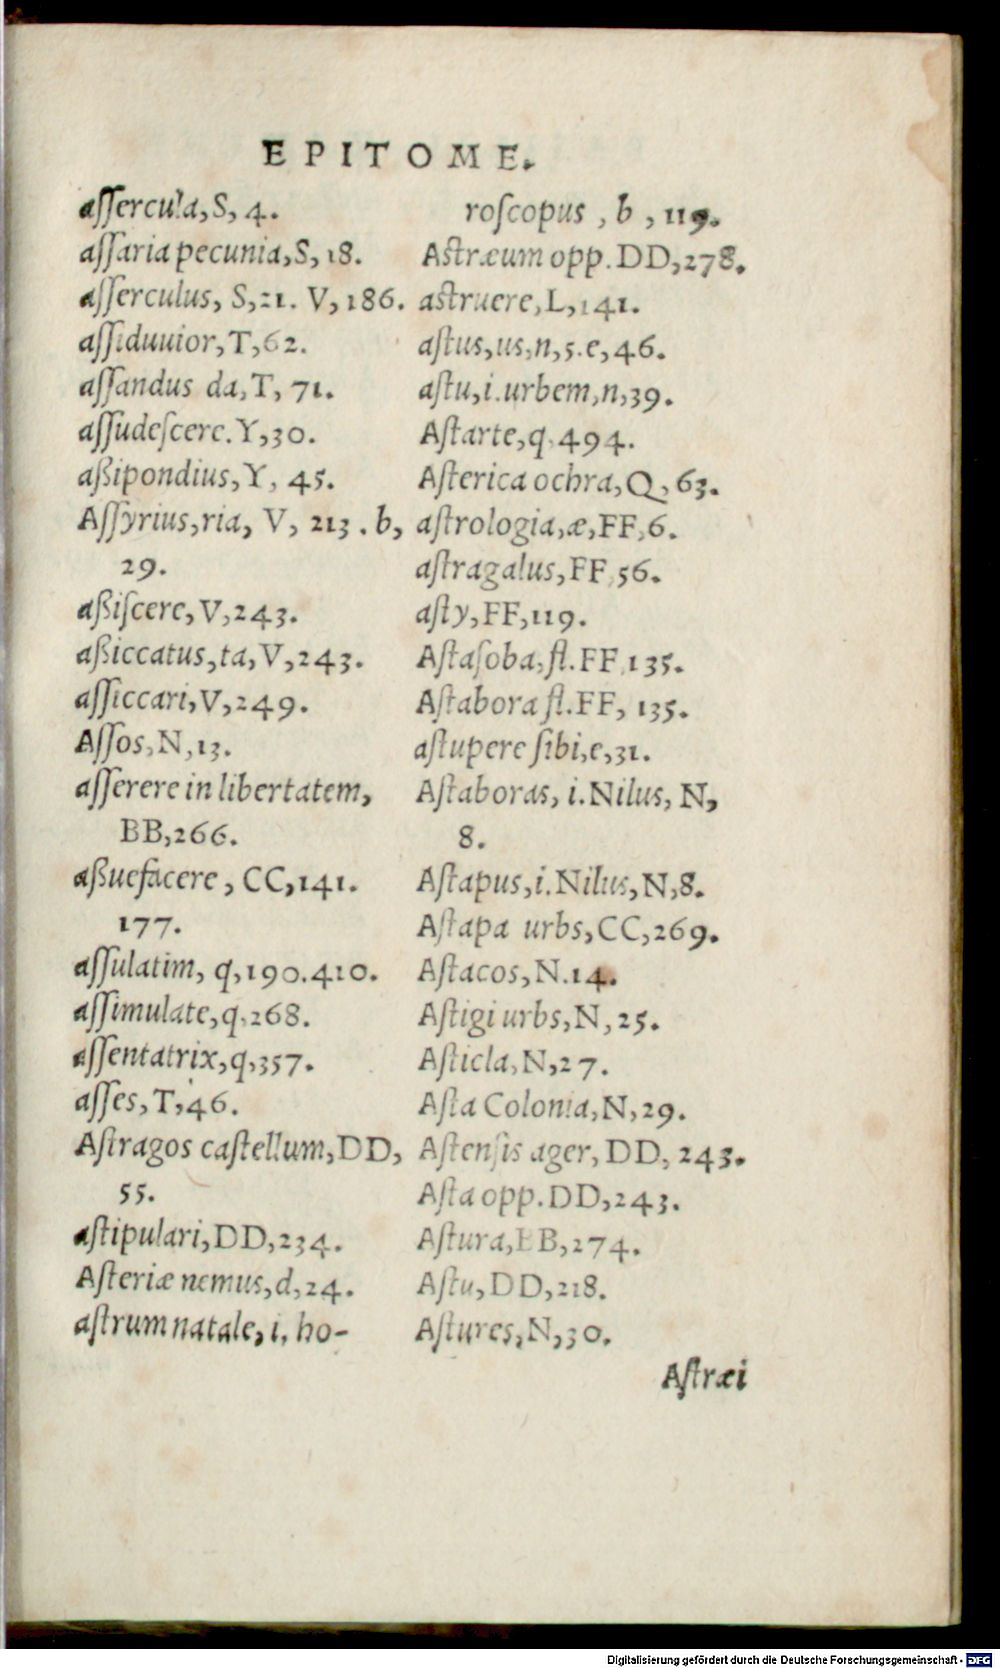 EPITOME.
aſſercula, S, 4.
aſſaria pecunia, S, 18.
aſſerculus, S, 21. V, 186.
aſſiduuior, T, 62.
aſſandus da, T, 71.
aſſudeſcere. Y, 30.
aßipondius, Y, 45.
Aſſyrius, ria, V, 213. b,
29.
aßiſcere, V, 243.
aßiccatus, ta, V, 243.
aſſiccari, V, 249.
Aſſos, N, 13.
aſſerere in libertatem,
BB, 266.
aßuefacere, CC, 141.
177.
aſſulatim, q, 190. 410.
aſſimulate, q, 268.
aſſentatrix, q, 357.
aſſes, T, 46.
Aſtragos caſtellum, DD,
55.
aſtipulari, DD, 234.
Aſteriæ nemus, d, 24.
aſtrum natale, i. ho-
roſcopus, b, 119.
Aſtræum opp. DD, 278.
aſtruere, L, 141.
aſtus, us, n, 5. e, 46.
aſtu, i. urbem, n, 39.
Aſtarte, q, 494.
Aſterica ochra, Q, 63.
aſtrologia, æ, FF, 6.
aſtragalus, FF, 56.
aſty, FF, 119.
Aſtaſoba, fl. FF, 135.
Aſtabora fl. FF, 135.
aſtupere ſibi, e, 31.
Aſtaboras, i. Nilus, N,
8.
Aſtapus, i. Nilus, N, 8.
Aſtapa urbs, CC, 269.
Aſtacos, N. 14.
Aſtigi urbs, N, 25.
Aſticla, N, 27.
Aſta Colonia, N, 29.
Aſtenſis ager, DD, 243.
Aſta opp. DD, 243.
Aſtura, BB, 274.
Aſtu, DD, 218.
Aſtures, N, 30.
Aſtræi
Digitalisierung gefördert durch die Deutsche Forschungsgemeinschaft - DFG